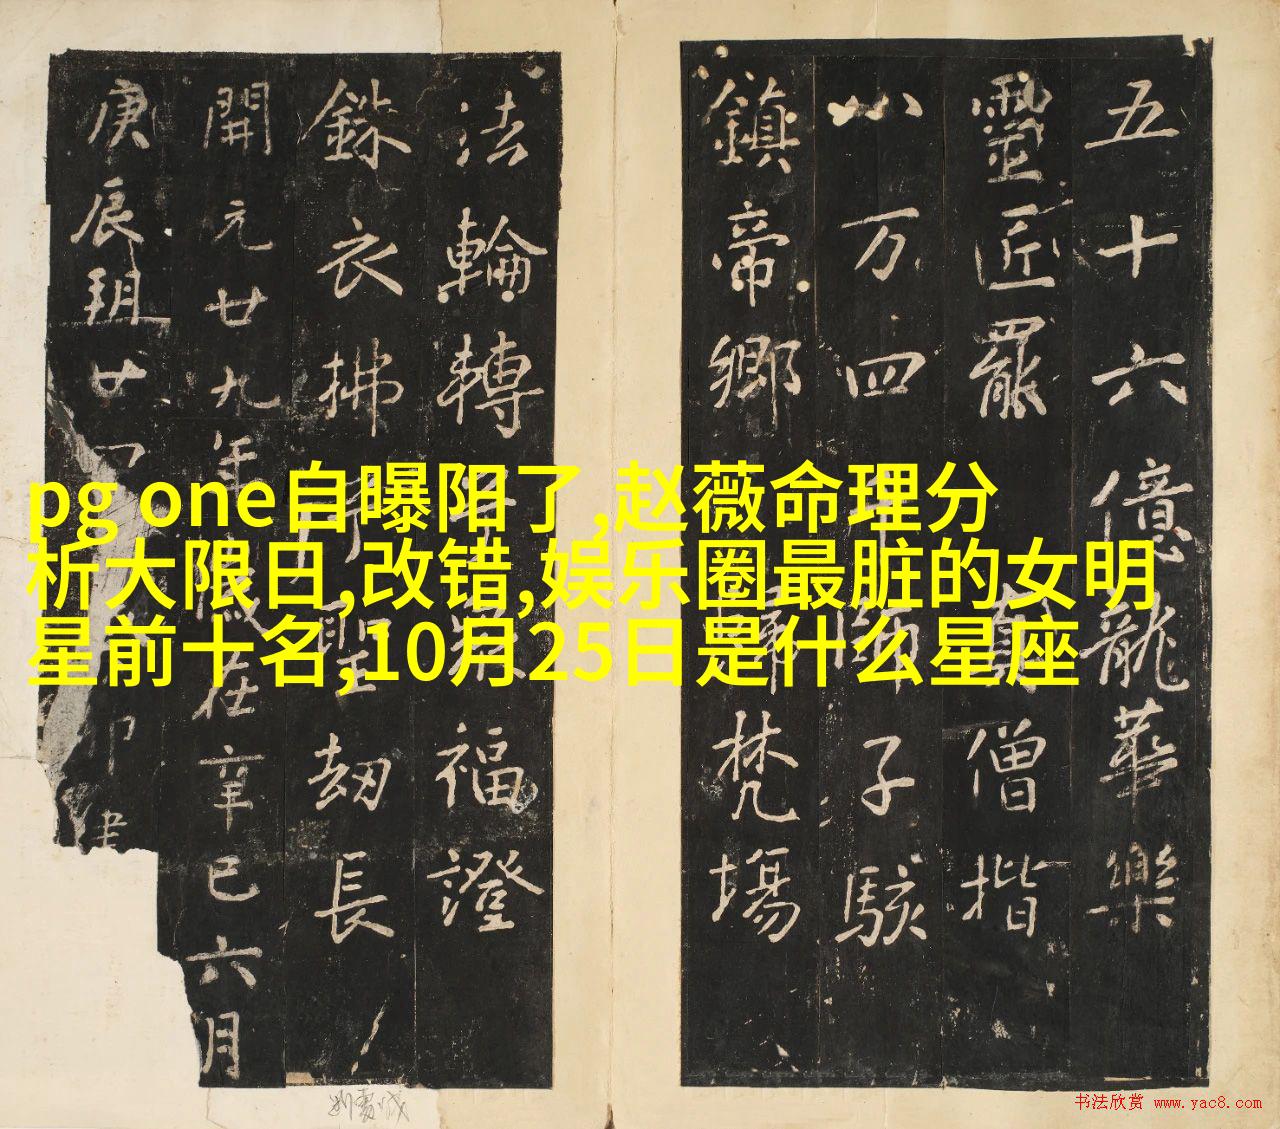 五十六億龍華樂
靈匠罷 僧揩
八万四 子駭
鎮帝鄉 梵場
法輪轉 福證
銖衣拂 劫長
開元廿九年歲在辛巳六月
庚辰玥廿
pg one自曝阳了,赵薇命理分
析大限日,改错,娱乐圈最脏的女明
星前十名,10月25日是什么星座
书法欣赏 www.yac8.com